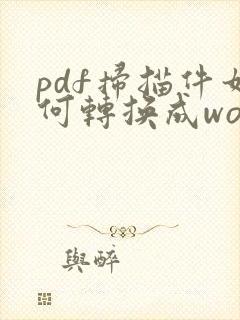 pdf掃描件如
何轉換成wo
與醉